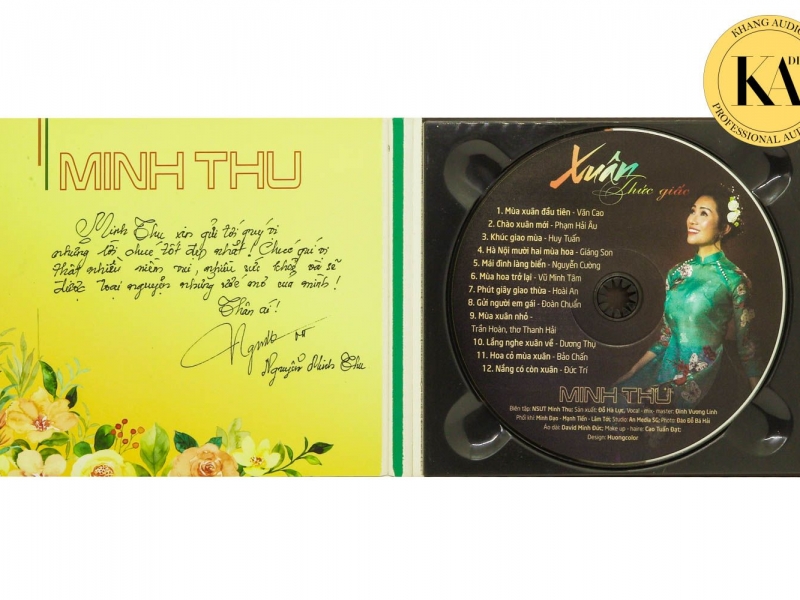 MINH THU
Minh Thu xin gửi tới quý vị
những lời chúc tốt đẹp nhất! Chúc quí vị
thật nhiều niềm vui, nhiều sức khoẻ và sẽ
được toại nguyện những ước mơ của mình!
Thân ái!
Nguyễn Minh Thu
Xuân
Thức giấc
1. Mùa xuân đầu tiên - Văn Cao
2. Chào xuân mới - Phạm Hải Âu
3. Khúc giao mùa - Huy Tuấn
4. Hà Nội mười hai mùa hoa - Giáng Son
5. Mái đình làng biển - Nguyễn Cường
6. Mùa hoa trở lại - Vũ Minh Tâm
7. Phút giây giao thừa - Hoài An
8. Gửi người em gái - Đoàn Chuẩn
9. Mùa xuân nhỏ -
Trần Hoàn, thơ Thanh Hải
10. Lắng nghe xuân về - Dương Thụ
11. Hoa cỏ mùa xuân - Bảo Chấn
12. Nắng có còn xuân - Đức Trí
MINH THU
Biên tập: NSUT Minh Thu; Sản xuất: Đỗ Hà Lục, Vocal - mix- master: Đinh Vương Linh
Phối khí: Minh Đạo - Mạnh Tiến - Lâm Tới; Studio: An Media SG; Photo: Đào Đỗ Bá Hải
Áo dài: David Minh Đức; Make up - hairs: Cao Tuấn Đạt;
Design: Huongcolor
KHANG AUDIO
KA
PROFESSIONAL